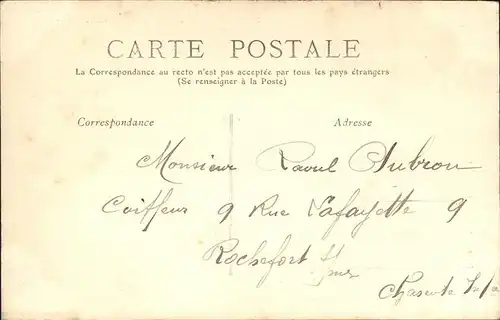 CARTE POSTALE
La Correspondance au recto n'est pas acceptée par tous les pays étrangers
(Se renseigner à la Poste)
Correspondance Adresse
Monsieur Raoul Aubron
Coiffeur 9 Rue Lafayette 9
Rochefort S/
mer
Charente Infre